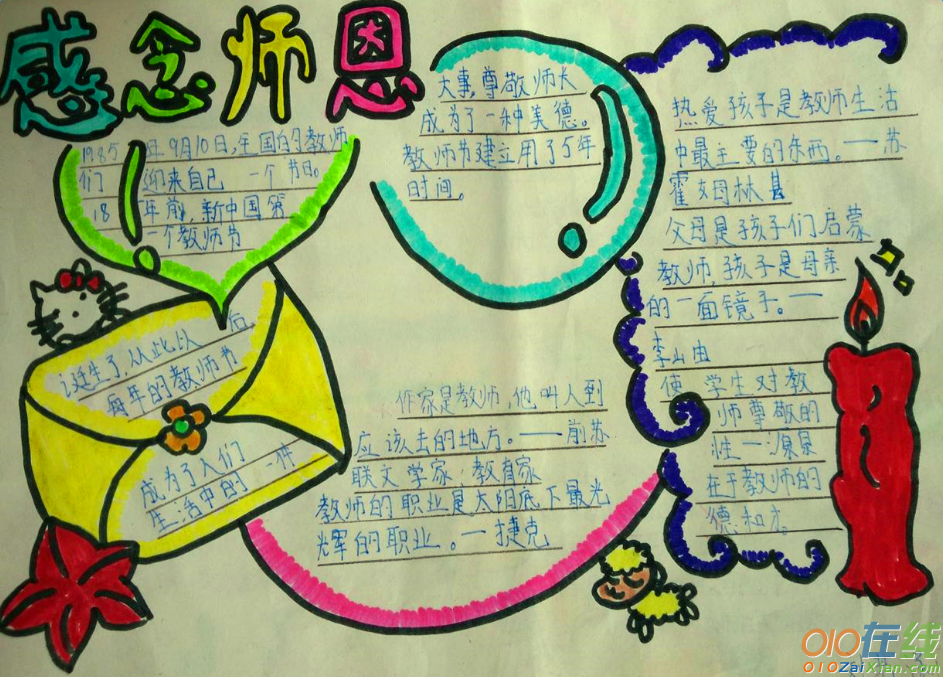 感念师恩
1985年9月10日,全国的教师
们迎来自己 一个节日。
18年前,新中国第
一个教师节
诞生了,从此以后
每年的教师节
成为了人们
生活中的一件
大事,尊敬师长
成为了一种美德。
教师节建立用了5年
时间。
作家是教师,他叫人到
应该去的地方。——前苏
联文学家,教育家
教师的职业是太阳底下最光
辉的职业。—捷克
热爱孩子是教师生活
中最主要的东西。——苏
霍姆林
父母是孩子们启蒙
教师,孩子是母亲
的一面镜子。——
李山由
使学生对教
师尊敬的
性一源泉
在于教师的
德和才。
010在线
010ZaiXian.com